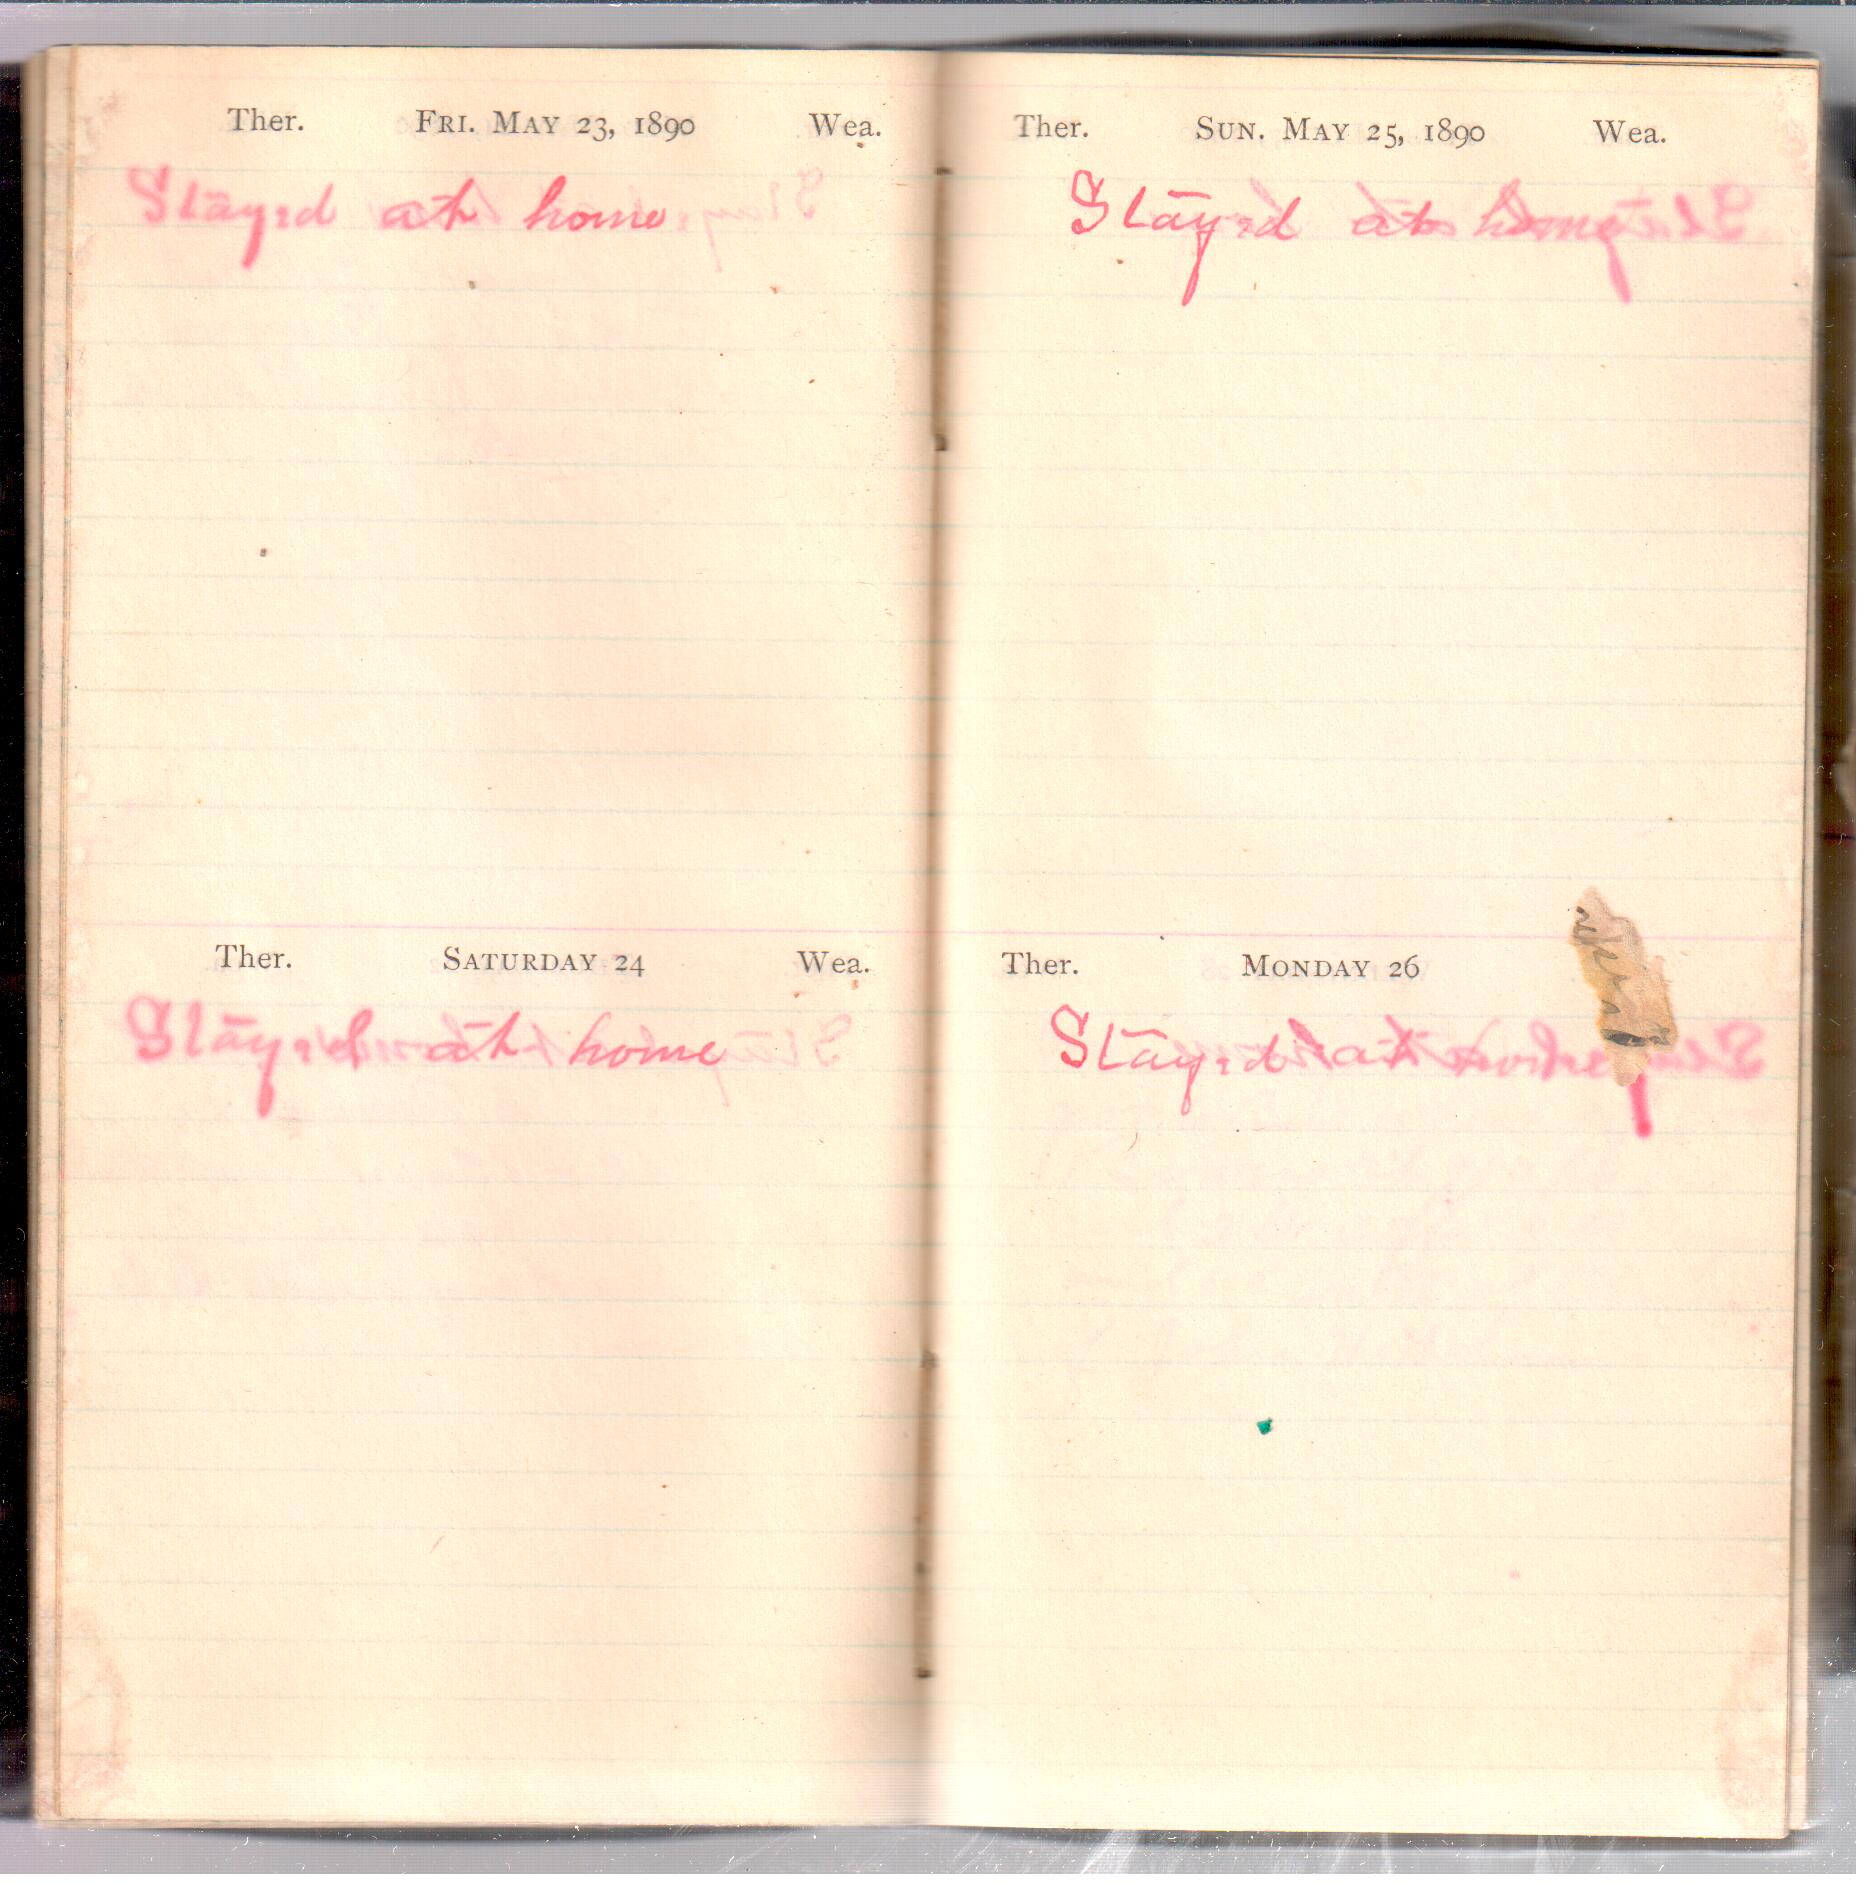 Ther. FRI. MAY 23, 1890 Wea.
Stayed at home
Ther. SATURDAY 24 Wea.
Stayed at home
Ther. SUN. MAY 25, 1890 Wea.
Stayed at home
Ther. MONDAY 26
Stayed at home